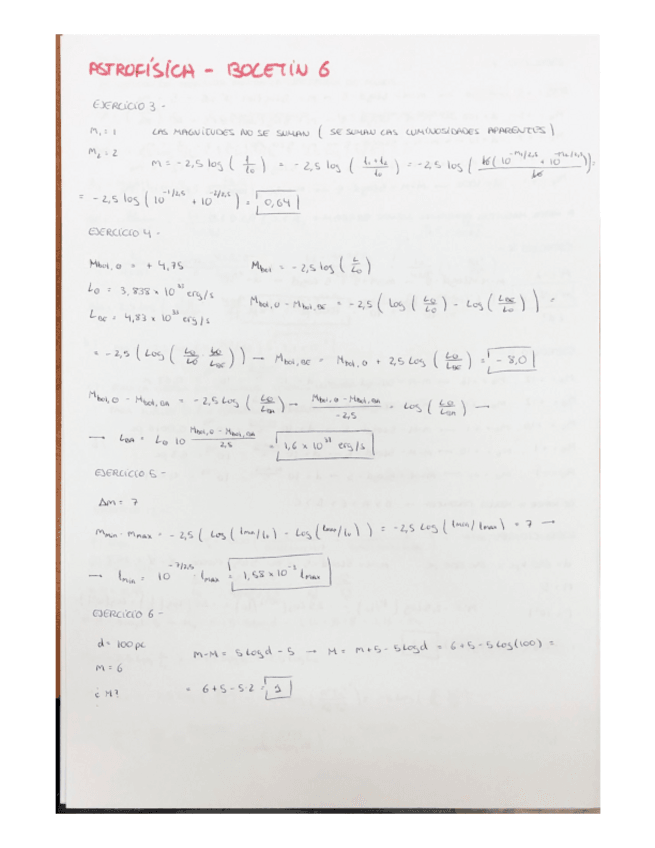 ASTROFÍSÍCA - BOLETÍN 6
EJERCICIO 3 -
M₁ = 1 LAS MAGNITUDES NO SE SUMAN ( SE SUMAN LAS LUMINOSIDADES APARENTES )
M₂ = 2 M = -2,5 log ( l/l₀ ) = -2,5 log ( (l₁+l₂)/l₀ ) = -2,5 log ( l₀ ( 10^(-m₁/2,5) + 10^(-m₂/2,5) ) / l₀ ) =
= -2,5 log ( 10^(-1/2,5) + 10^(-2/2,5) ) = 0,64
EJERCICIO 4 -
Mbol,⊙ = + 4,75 Mbol = -2,5 log ( L/L₀ )
L⊙ = 3,838 x 10 erg/s Mbol,⊙ - Mbol,BC = -2,5 ( Log ( L⊙/L₀ ) - Log ( LBC/L₀ ) ) =
LBC = 4,83 x 10 erg/s
= -2,5 ( Log ( L⊙/L₀ · L₀/LBC ) ) → Mbol,BC = Mbol,⊙ + 2,5 Log ( L⊙/LBC ) = -8,0
Mbol,⊙ - Mbol, = -2,5 Log ( L⊙/L ) → (Mbol,⊙ - Mbol,)/-2,5 = Log ( L⊙/L ) →
→ L = L⊙ 10 (Mbol,⊙ - Mbol,)/2,5 = 1,6 x 10 erg/s
EJERCICIO 5 -
Δm = 7
Mmin - Mmax = -2,5 ( Log ( lmin/l₀ ) - Log ( lmax/l₀ ) ) = -2,5 Log ( lmin/lmax ) = 7 →
→ lmin = 10^(-7/2,5) · lmax = 1,58 x 10⁻³ lmax
EJERCICIO 6 -
d = 100 pc
m - M = 5 Log d - 5 → M = m + 5 - 5 Log d = 6 + 5 - 5 Log (100) =
m = 6
¿ M? = 6 + 5 - 5·2 = 1